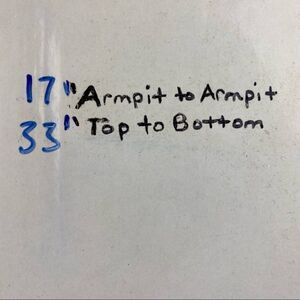 17" Armpit to Armpit
33" Top to Bottom